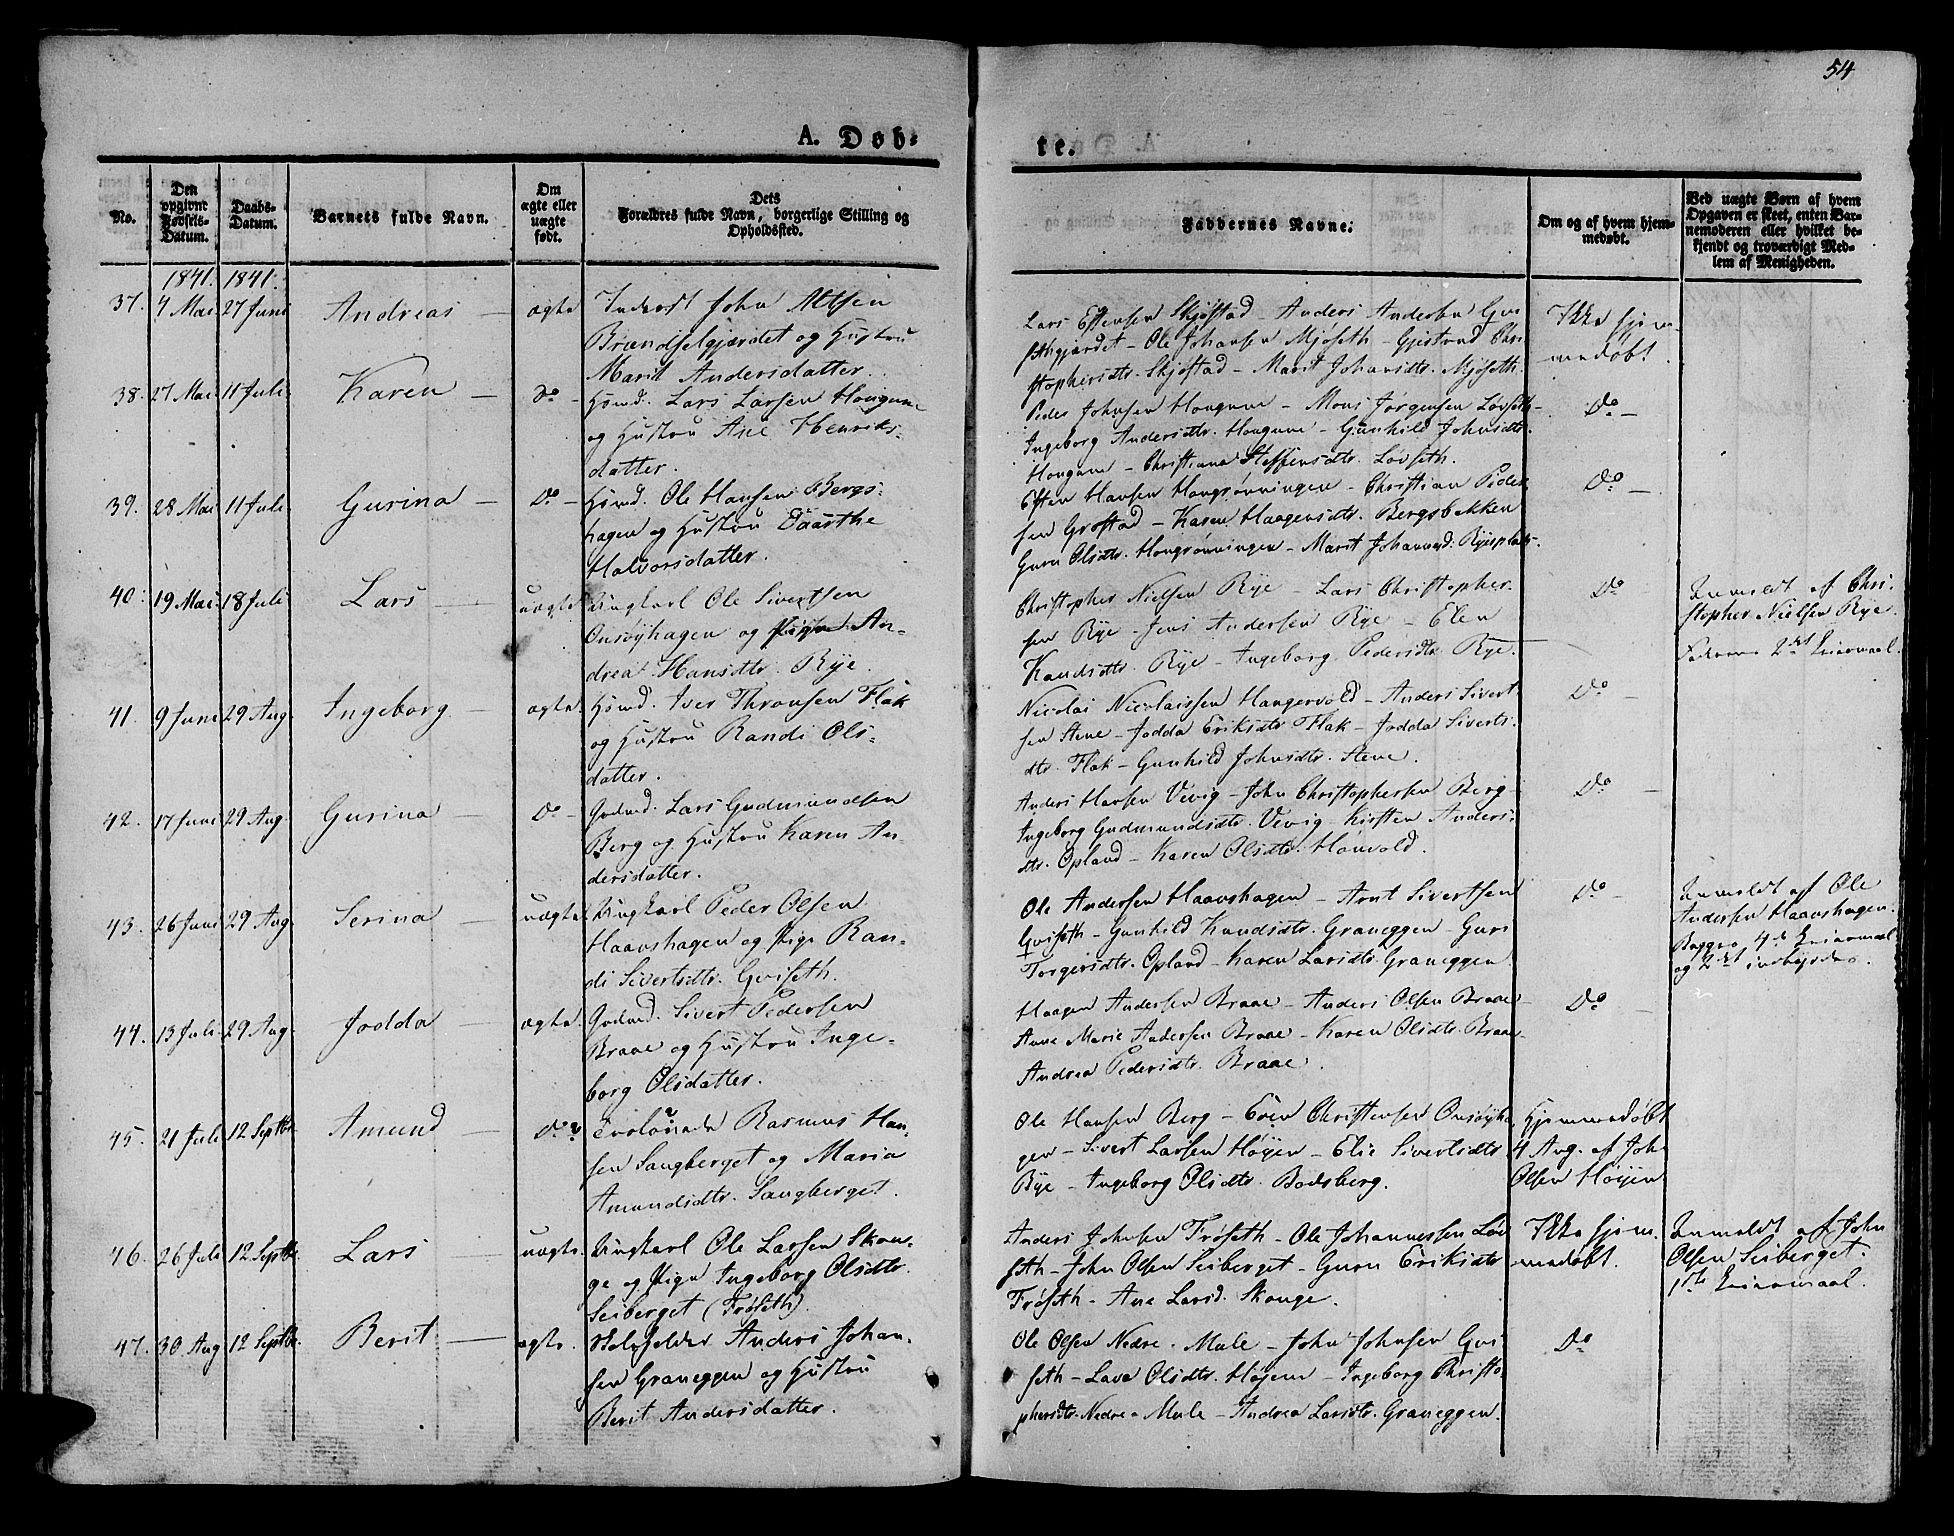 54
A. Døb-
te.
No.
Den opgivne Fødsels-Datum.
Daabs-Datum.
Barnets fulde Navn.
Om ægte eller uægte født.
Dets Forældres fulde Navn, borgerlige Stilling og Opholdssted.
Faddernes Navne.
Om og af hvem hjem-medøbt.
Ved uægte Børn af hvem Opgaven er skeet, enten Bar-nemoderen eller hvilket be-kjendt og troværdigt Med-lem af Menigheden.
1841. 1841.
37. 4 Mai 27 Juni Andreas — ægte
John
Brændselgjærdet og Hustru
Marit Andersdatter.
Lars Estensen Skjøstad – Anders Andersen Gvi
sethgjærdet – Ole Johansen Mjøseth – Gjertrud Chri
stophersdtr. Skjøstad – Marit Johansdtr. Mjøseth.
Ikke hjem-
medøbt.
38. 27 Mai 11 Juli Karen — Do –
Huusmd. Lars Larsen Hougum
og Hustru Ane Henriks-
datter.
Peder Johnsen Hougum – Mons Jørgensen Løvseth –
Ingeborg Andersdtr. Hougum – Gunhild Johnsdtr.
Hougum – Christiana Steffensdtr. Løvseth.
Do –
39. 28 Mai 11 Juli Gurina — Do –
Huusmd. Ole Hansen Bergs-
hagen og Hustru Daarthe
Halvorsdatter.
Esten Hansen Hougrønningen – Christian Peder
sen Grøstad – Karen Haagensdtr. Bergsbakken
Guru Olsdtr. Hougrønningen – Marit Johannsd: Ryesplads.
Do –
40. 19 Mai 18 Juli Lars — uægte
Ungkarl Ole Sivertsen
Onsøyhagen og Pige An-
drea Hansdtr. Rye.
Christopher Nielsen Rye – Lars Christopher-
sen Rye – Jens Andersen Rye – Elen
Knudsdtr. Rye – Ingeborg Pedersdtr. Rye.
Do –
Anmeldt af Chri-
stopher Nielsen Rye.
Faderens 2det Leiermaal.
41. 9 Juni 29 Aug. Ingeborg — ægte.
Huusmd. Iver Thronsen Flak
og Hustru Randi Ols-
datter.
Nicolai Nicolaissen Haugervold – Anders Sivert-
sen Stene – Jodda Eriksdtr. Flak – Jodda Siverts-
dtr. Flak – Gunhild Johnsdtr. Stene.
Do –
42. 17 Juni 29 Aug. Gurina — Do –
Gudmd. Lars Gudmundsen
Berg og Hustru Karen An-
dersdatter.
Anders Hansen Vevig – John Christophersen Berg –
Ingeborg Gudmundsdtr. Vevig – Kirsten Anders-
dtr. Opland – Karen Olsdtr. Hønvold.
Do –
43. 26 Juni 29 Aug. Serina — uægte
Ungkarl Peder Olsen
Haavshagen og Pige Ran-
di Sivertsdtr. Gviseth.
Ole Andersen Haavshagen – Arnt Sivertsen
Gviseth – Gunhild Knudsdtr. Graneggen – Guri
Torgersdtr. Opland – Karen Larsdtr. Graneggen.
Do –
Anmeldt af Ole
Andersen Haavshagen.
Begges Leiermaal
og 2det
44. 13 Juli 29 Aug. Jodda — ægte.
Gudmd. Sivert Pedersen
Braae og Hustru Inge-
borg Olsdatter.
Haagen Andersen Braae – Anders Olsen Braae –
Anne Marie Andersen Braae – Karen Olsdtr. Braae –
Andrea Pedersdtr. Braae.
Do –
45. 21 Juli 12 Septbr. Amund — Do
Rasmus Han-
sen Sangberget og Maria
Amundsdtr. Sangberget.
Ole Hansen Berg – Christensen Onsøyha
gen – Sivert Larsen Høyen – Elie Sivertsdtr.
Rye – Ingeborg Olsdtr. Bodsberg.
Hjemmedøbt
4 Aug. af John
Olsen Høyen
46. 26 Juli 12 Septbr. Lars — uægte.
Ungkarl Ole Larsen Skoun-
ge og Pige Ingeborg Olsdtr.
Seiberget (Frøseth).
Anders Johnsen Frøseth – Ole Johannessen Løv
seth – John Olsen Seiberget – Guru Eriksdtr.
Frøseth – Ane Larsd. Skounge.
Ikke hjem-
medøbt.
Anmeldt af John
Olsen Seiberget.
1ste Leiermaal.
47. 30 Aug 12 Septbr. Berit — ægte.
Anders Johan-
sen Graneggen og Hustru
Berit Andersdatter.
Ole Olsen Nedre-Mule – John Johnsen Gvi-
seth – Lava Olsdtr. Høyem – Ingeborg Christo-
phersdtr. Nedre-Mule – Andrea Larsdtr. Graneggen.
Do